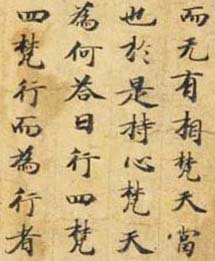 而无有相梵天當
也於是持心梵天
為何荅曰行四梵
四梵行而為行者